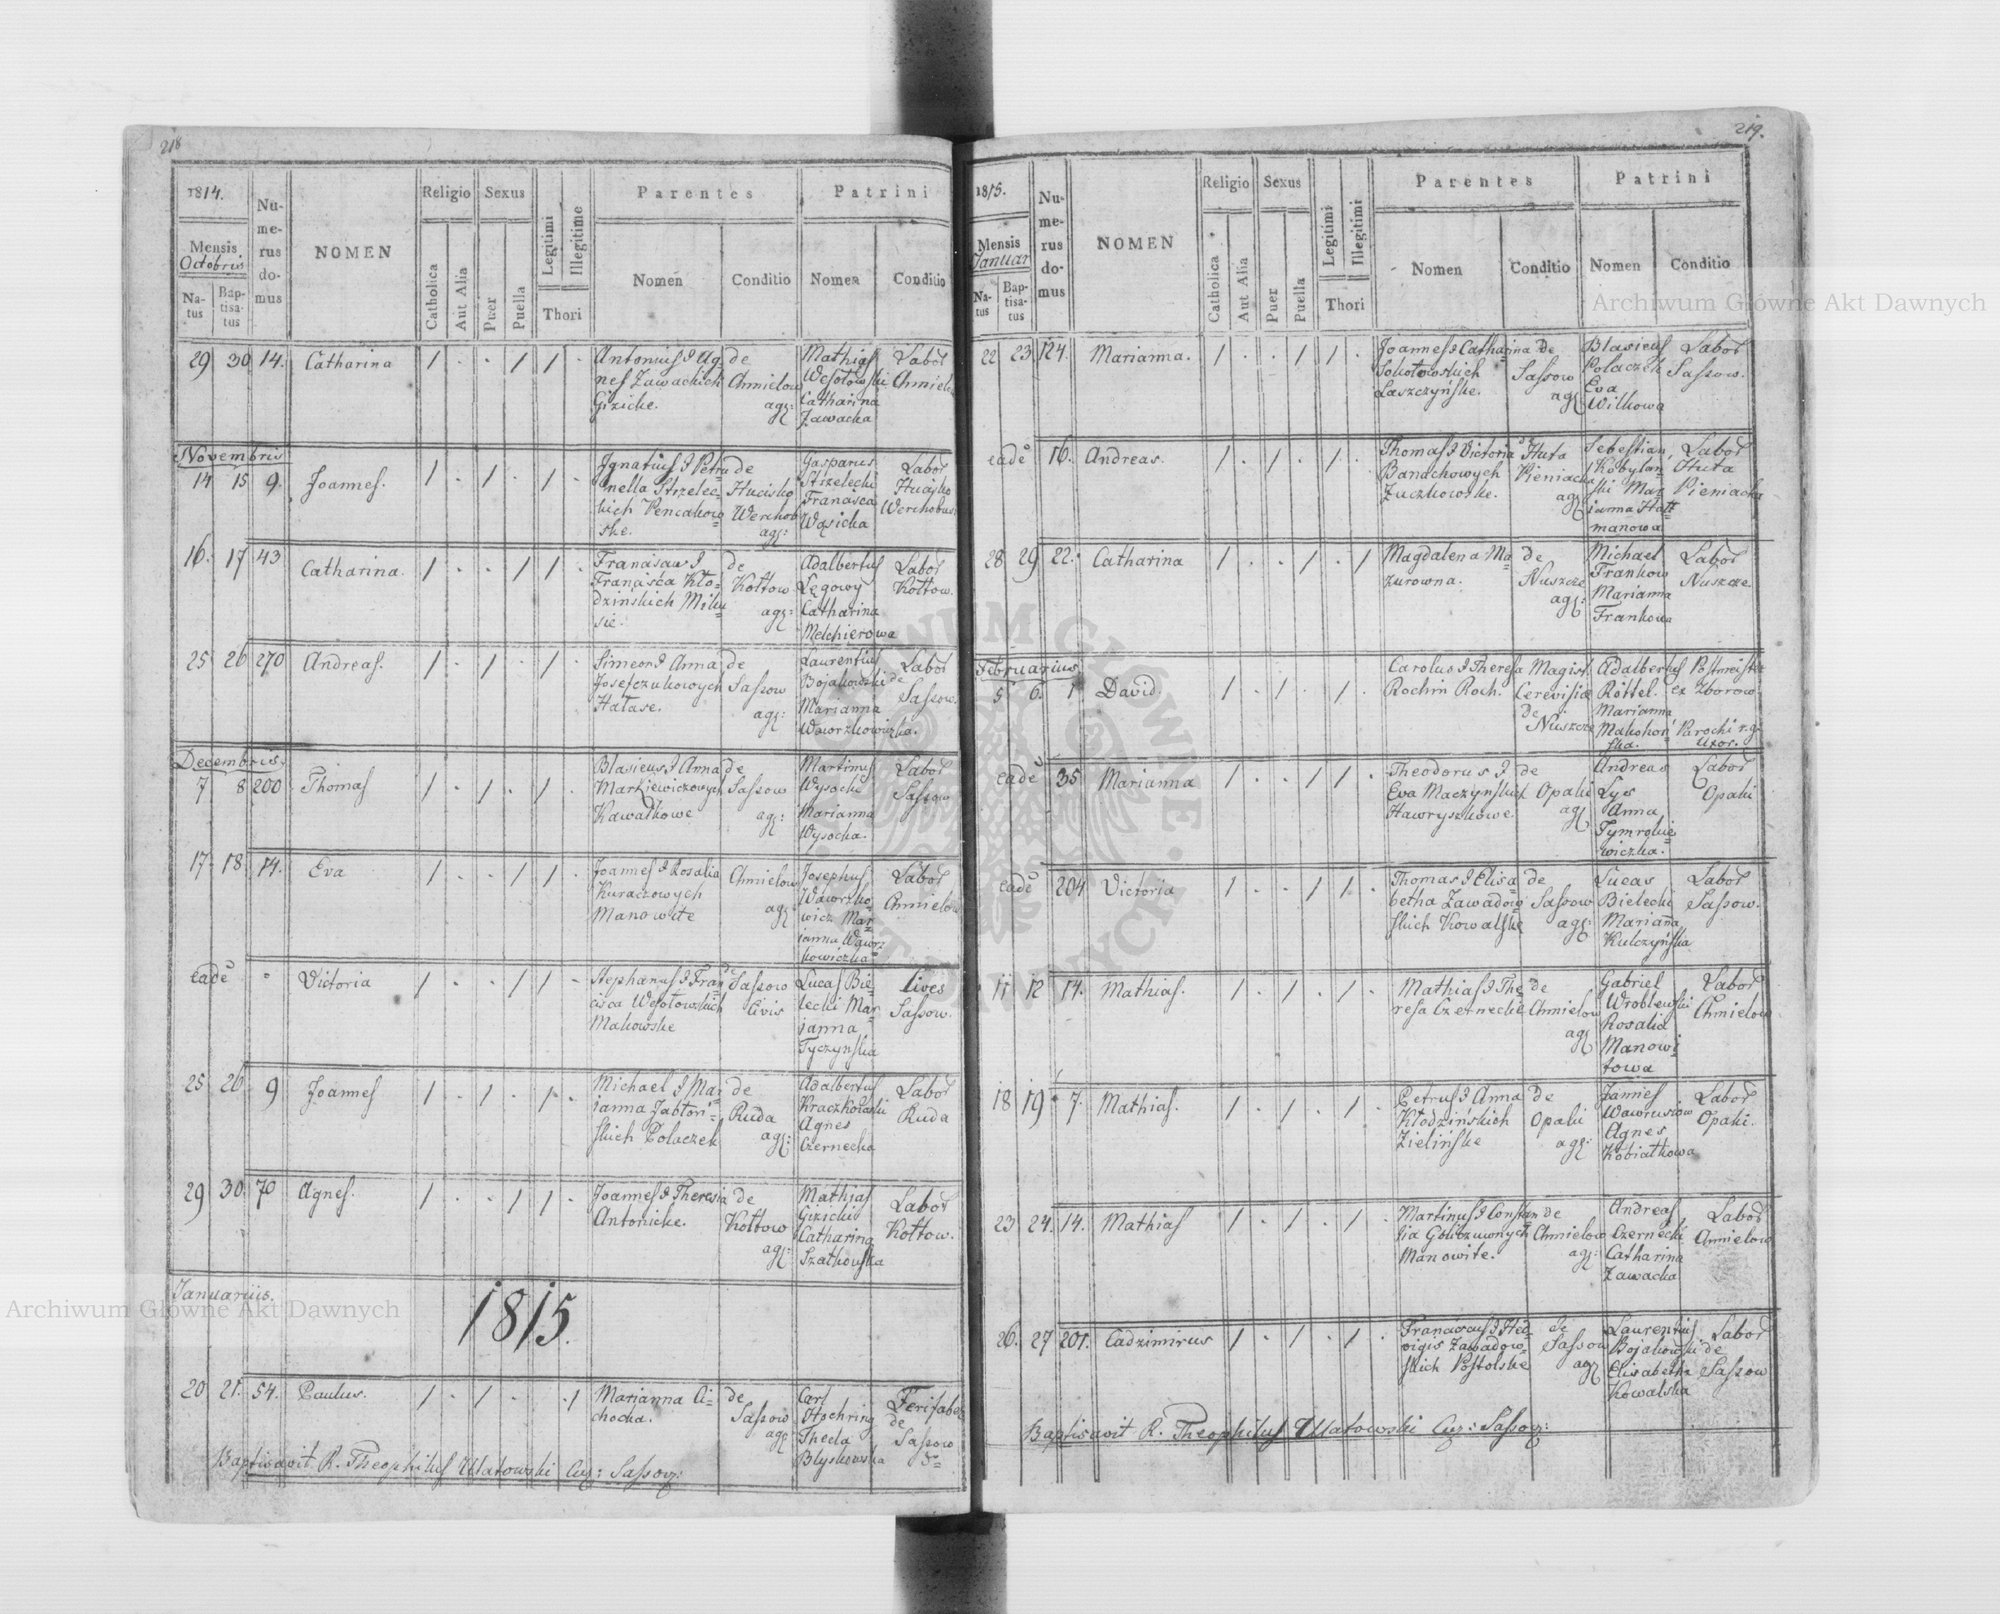 218
1814.
Mensis
Octobris
Na-
tus
Bap-
tisa-
tus
Nu-
me-
rus
do-
mus
NOMEN
Religio
Catholica
Aut Alia
Sexus
Puer
Puella
Legitimi
Illegitime
Thori
Parentes
Nomen
Conditio
Patrini
Nomen
Conditio
29 30 14. Catharina 1 . . 1 1 .
Antonius & Ag=
nes Zawackich
Gizicke.
de
Chmielow
agr:
Mathias
Wesołowski
Catharina
Zawacka
Labor
Chmielow
Novembris
14 15 9. Joannes. 1 . 1 . 1 .
Ignatius & Petro
nella Strzelec=
kich Pencakow
ske.
de
Hucisko
Werchob
agr:
Gasparus
Strzelecki
Francisca
Wąsicka
Labor
Hucisko
Werchobus
16. 17 43 Catharina. 1 . . 1 1 .
Franciscus &
Francisca Kło=
dzińskich Miku
sie.
de
Kołtow
agr:
Adalbertus
Łęgowy
Catharina
Melchierowa
Labor
Kołtow.
25 26 270 Andreas. 1 . 1 . 1 .
Simeon & Anna
Josefczukowych
Hałase.
de
Sassow
agr:
Laurentius
Bojakowski
Marianna
Waworzkowiczka.
Labor
de
Sassow.
Decembris
7 8 200 Thomas 1 . 1 . 1 .
Blasieus & Anna
Markiewiczowych
Kawałkowe
de
Sassow
agr:
Martinus
Wysocki
Marianna
Wysocka.
Labor
Sassow
17 18 14. Eva 1 . . 1 1 .
Joannes & Rosalia
Kuraczowych
Manowite
Chmielow
agr:
Josephus
Waworzko=
wicz Mar=
janna Wawor=
kowiczka
Labor
Chmielow
eadē Victoria 1 . . 1 1 .
Stephanus & Fran
cisca Wesołowskich
Makowske
de
Sassow
Civis
Lucas Bie=
lecki Mar=
janna
Tyczynska
Cives
Sassow.
25 26 9 Joannes 1 . 1 . 1 .
Michael & Mar
janna Jabłoń=
skich Polaczek
de
Ruda
agr:
Adalbertus
Kraczkowski
Agnes
Czernecka
Labor
Ruda
29 30. 70 Agnes. 1 . . 1 1 .
Joannes & Theresia
Antonicke.
de
Kołtow
agr:
Mathias
Gizicki
Catharina
Szatkowska
Labor
Kołtow.
Januarius.
1815.
20 21. 54. Paulus. 1 . 1 . . 1
Marjanna Ci=
chocka.
de
Sassow
agr
Carl
Hochring
Thecla
Blyskowska
Ferifaber
de
Sassow
Baptisavit R. Theophilus Ulatowski Cur: Sassow:
219.
1815.
Mensis
Januar
Na-
tus
Bap-
tisa-
tus
Nu-
me-
rus
do-
mus
NOMEN
Religio
Catholica
Aut Alia
Sexus
Puer
Puella
Legitimi
Illegitimi
Thori
Parentes
Nomen
Conditio
Patrini
Nomen
Conditio
22 23 124. Marianna. 1 . . 1 1 .
Joannes & Catharina
Sokołowskich
Laszczyńske.
de
Sassow
agr
Blasieus
Polaczek
Eva
Wilkowa
Labor
Sassow.
eadē 16. Andreas. 1 . 1 . 1 .
Thomas & Victoria
Banachowych
Zuczkowske.
de Huta
Pieniacka
agr
Sebestian
Kobylan=
ski Mar=
janna Hoff
manowa
Labor
Huta
Pieniacka
28 29 22. Catharina 1 . . 1 . 1
Magdalena Ma
zurowna.
de
Nuszcze
agr:
Michael
Frankow
Marianna
Frankowa
Labor
Nuszcze
Februarius
5 6. 1 David. 1 . 1 . 1 .
Carolus & Theresa
Rochin Roch.
Magist.
Cerevisiæ
de
Nuszcze
Adalbertus
Röttel.
Marianna
Makohoń
ska.
Postmeister
ex Zborow.
Parochi r.g.
Uxor.
eadē 35 Marianna 1 . . 1 1 .
Theodorus &
Eva Maczynskich
Hawryszkowe.
de
Opaki
agr
Andreas
Lys
Anna
Tymrakie
wiczka.
Labor
Opaki
eadē 204 Victoria 1 . . 1 1 .
Thomas & Elisa
betha Zawadow
skich Kowalske
de
Sassow
agr:
Lucas
Bielecki
Marianna
Kulczyńska
Labor
Sassow.
11 12 14. Mathias. 1 . 1 . 1 .
Mathias & The=
resa Czernecke
de
Chmielow
agr
Gabriel
Wroblewski
Rosalia
Manowi=
towa
Labor
Chmielow
18 19 7. Mathias. 1 . 1 . 1 .
Petrus & Anna
Kłodzińskich
Zielińske
de
Opaki
agr:
Wawrusiow
Agnes
Kobiałkowa
Labor
Opaki.
23 24. 14. Mathias 1 . 1 . 1 .
Martinus & Constan
Manowite.
de
Chmielow
agr:
Andreas
Czernecki
Catharina
Zawacka
Labor
Chmielow
26. 27 201. Cadzimirus 1 . 1 . 1 .
Franciscus & Hed=
vigis Zawadow=
skich Postolske
de
Sassow
agr
Laurentius
Bojakowski
Elisabetha
Kowalska
Labor
de
Sassow
Baptisavit R. Theophilus Ulatowski Cur: Sassow:
Archiwum Główne Akt Dawnych
Archiwum Główne Akt Dawnych
ARCHIWUM GŁÓWNE AKT DAWNYCH